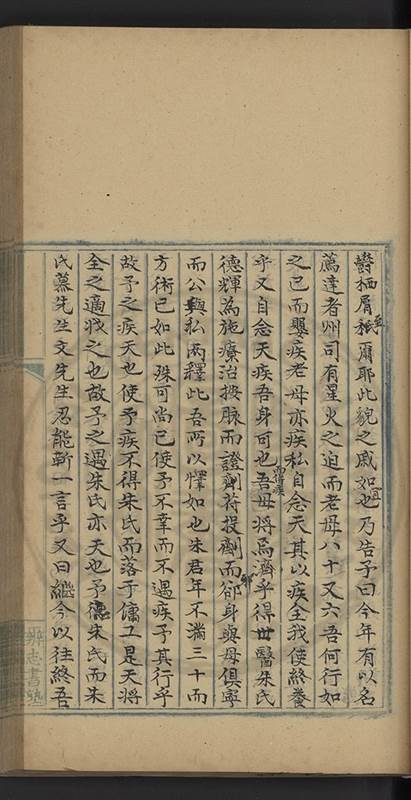 欎栖屑至爾耶此貌之戚如宜也乃告予曰今年有以名
薦達者州司有星火之迫而老母八十又六吾何行如
之已而嬰疾老母亦疾私自念天其以疾全我使終養
乎又自念天疾吾身可也吾母而罹疾將焉濟乎得世醫朱氏
德輝為施療治按脉而證劑符投劑而卻身與母俱寧
而公與私兩釋此吾所以懌如也朱君年不滿三十而
方術已如此殊可尚已使予不幸而不遇疾予其行乎
故予之疾天也使予疾不得朱氏而落于庸工是天將
全之適戕之也故予之遇朱氏亦天也予德朱氏而朱
氏慕先生文先生忍能靳一言乎又曰繼今以往終吾
辨志書塾